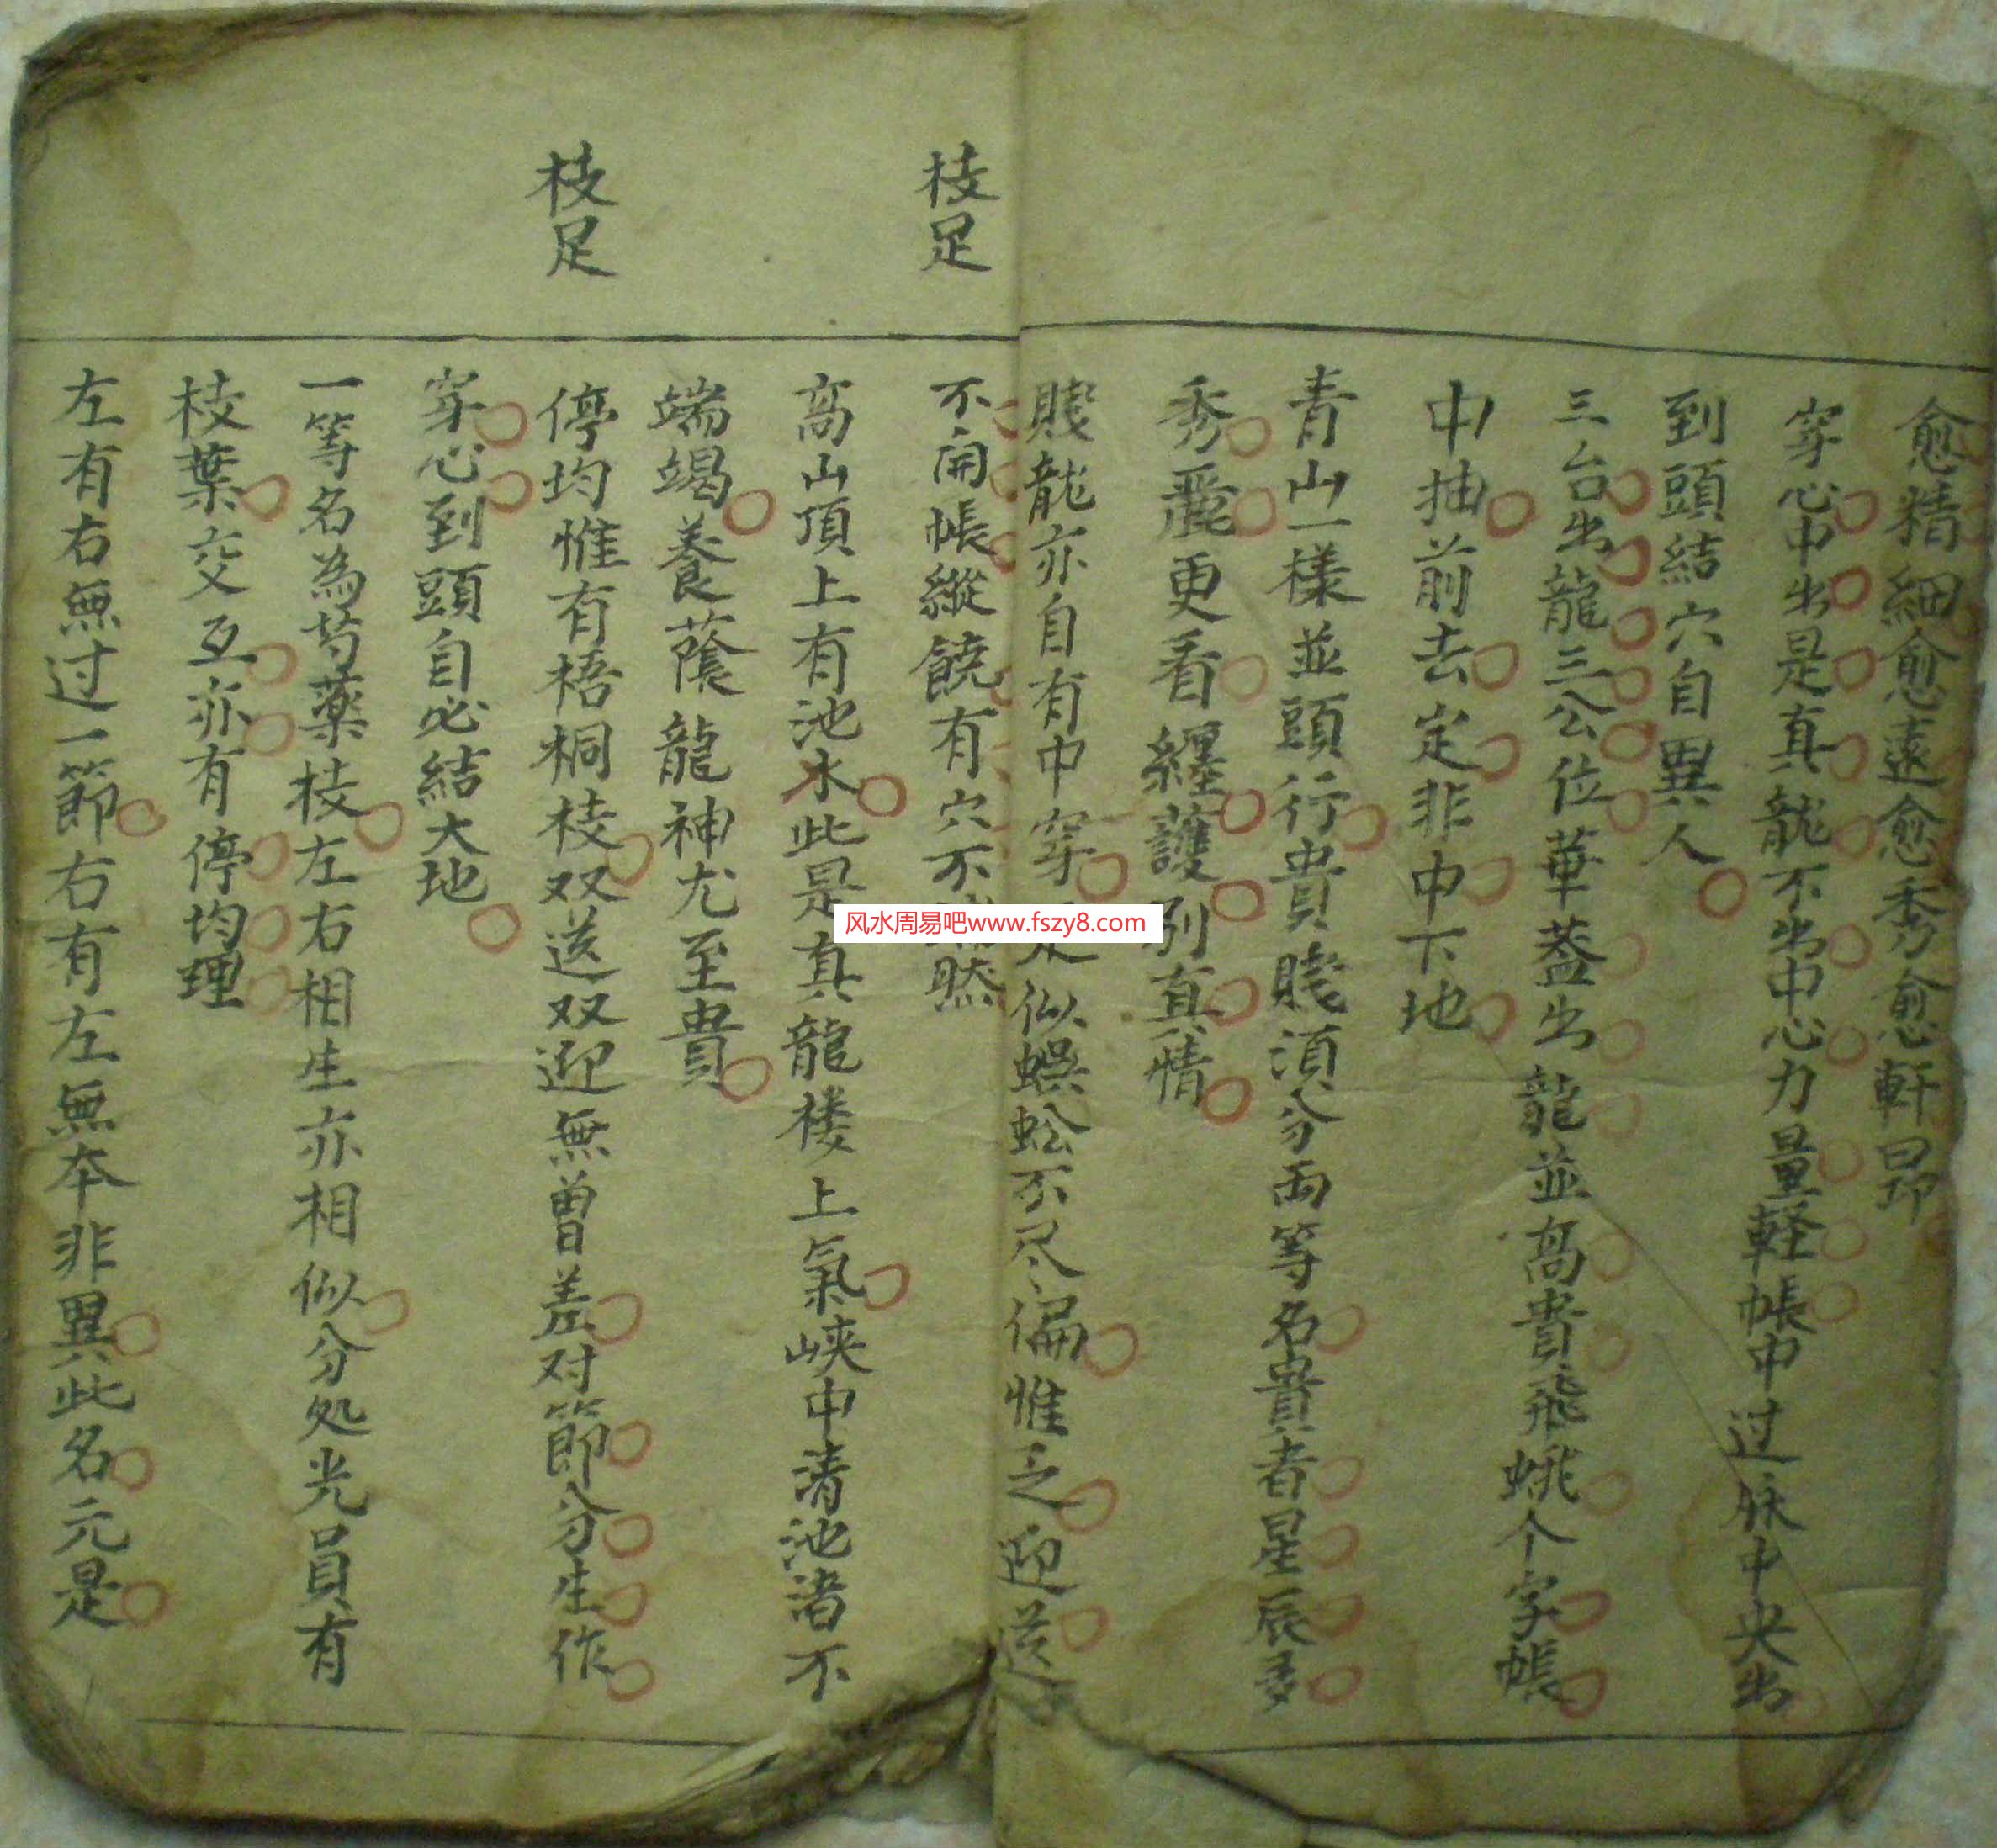 愈精細愈遠愈秀愈軒昂
穿心中出是真龍不出中心力量軽帳中过脉中央出
到頭結穴自異人
三台出龍三公位華蓋出龍並高貴飛蛾个字帳
中抽前去定非中下地
青山一樣並頭行貴賤須分両等名貴者星辰多
秀麗更看纏護別真情
賤龍亦自有中穿似蜈蚣不尽偏惟乏迎送
不開帳縱饒有穴不然
枝足
高山頂上有池水此是真龍楼上氣峡中清池渚不
端竭養蔭龍神尤至貴
枝足
停均惟有梧桐枝双送双迎無曽差对節分生作
穿心到頭自必結大地
一等名為芍薬枝左右相生亦相似分処光員有
枝葉交互亦有停均理
左有右無过一節右有左無本非異此名元是
风水周易吧www.fszy8.com